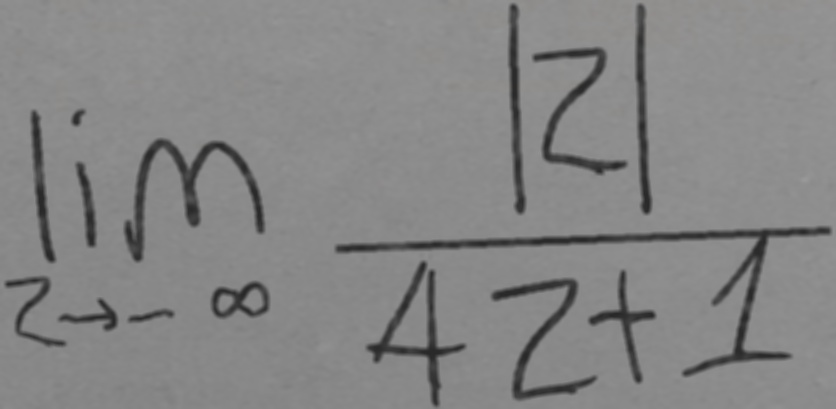 lim |z|
z→-∞ 4z+1